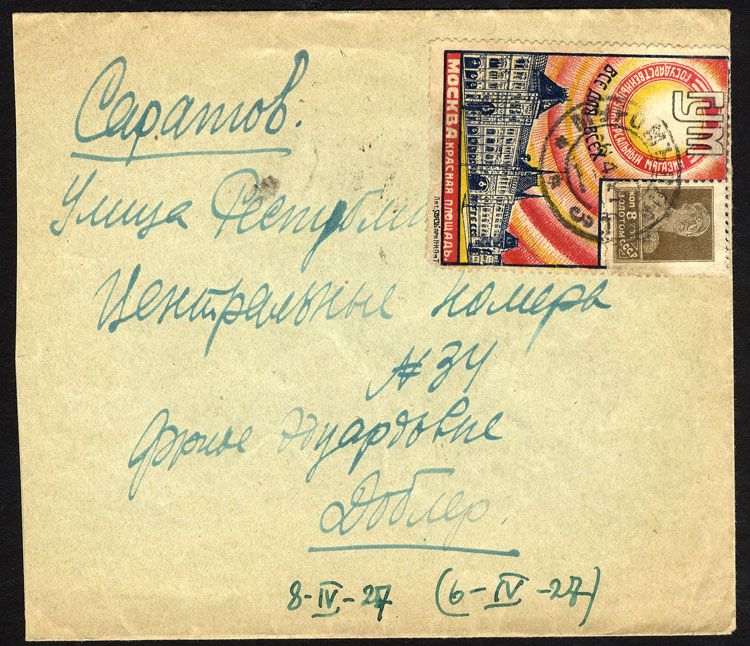 Саратов.
Улица Республи
Центральные номера
№ 34
Эдуардовне
Доблер.
8-IV-27 (6-IV-27)
МОСКВА КРАСНАЯ ПЛОЩАДЬ.
ВСЕ ДЛЯ ВСЕХ
ГУМ
ГОСУДАРСТВЕННЫЙ УНИВЕРСАЛЬНЫЙ МАГАЗИН
8
КОП
ЗОЛОТОМ
СССР